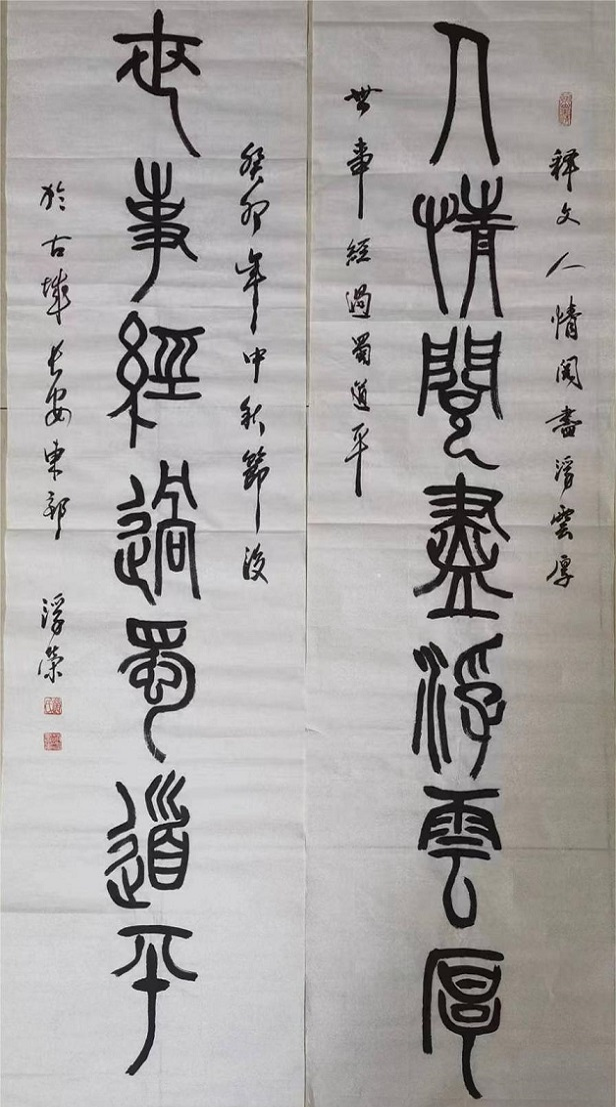 釋文人情閱盡浮雲厚
人情閱盡浮雲厚
世事經過蜀道平
癸卯年中秋節後
世事經過蜀道平
於古城長安東郊 浮榮